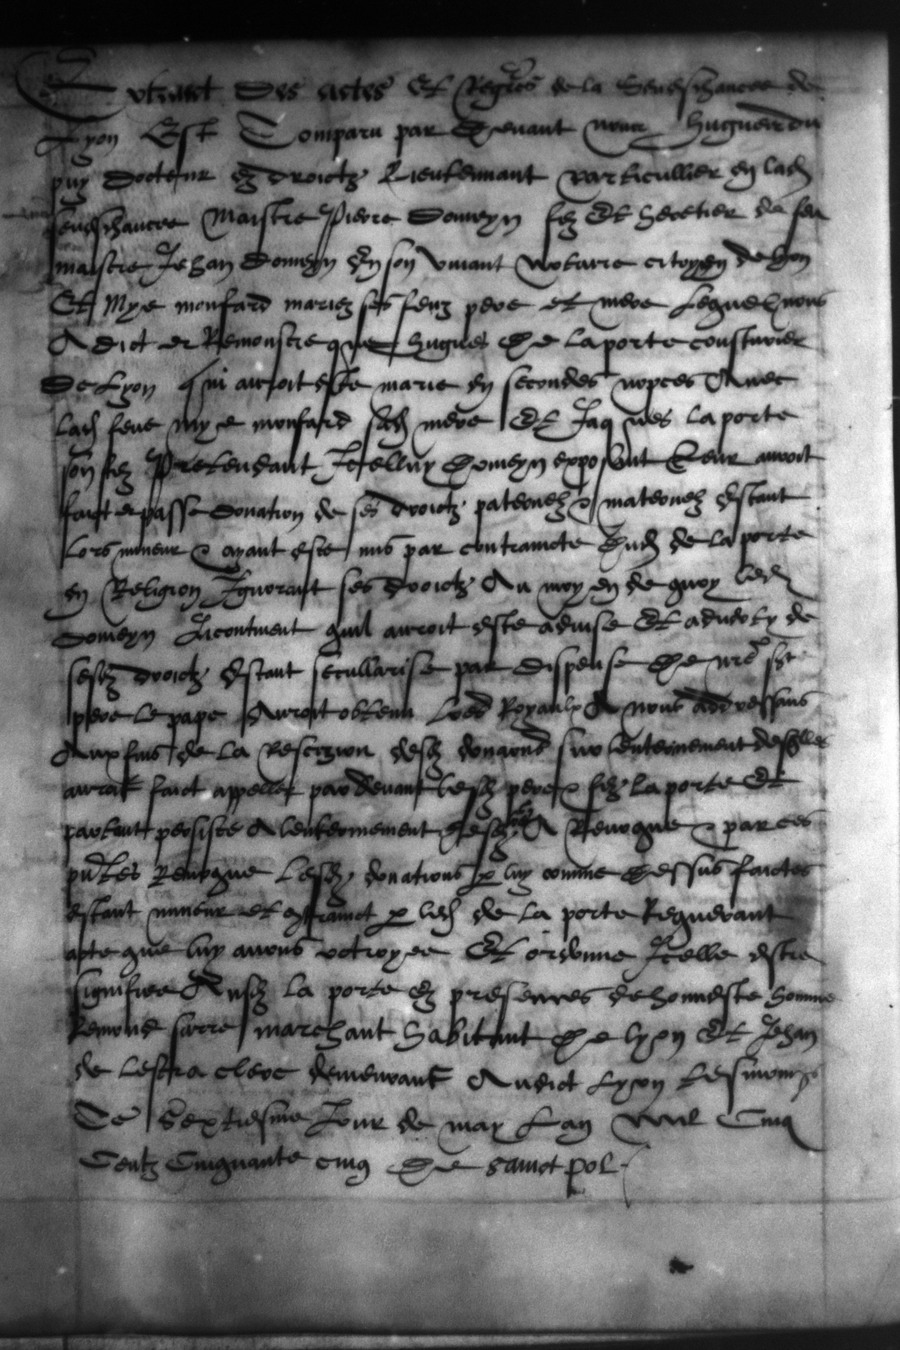 Extraict des actes Et Regres de la Seneschaucee de
Lyon Est Comparu par devant nous hugues du
puy docteur es droictz Lieutennant particullier en lad
seneschaucee Maistre Pierre Domeyn filz Et heretier de feu
maistre Jehan Domeyn En son vivant notaire citoyen de lyon
Et Mye monfard mariez ses feuz pere et mere Lequel nous
A dict et Remonstre que hugues De laporte cousturier
De Lyon qui auroit este marie en secondes nopces Avec
lad feue mye monfard sad mere Et Jaques laporte
son filz Pretendant Icelluy Domeyn Leur auroit
faict et passe donation de ses droictz paternelz & maternelz Estant
Lors mineur & ayant este mis par contraincte dud de la porte
en Religion Ignorant ses droictz Au moyen de quoy led
Domeyn Incontinent quil auroit este advise Et adverty de
sesd droictz Estant secullarise par dispense De nre st
pere le pape Auroit obtenu lres Royaulx A nous addressans
Aux fins de la Rescizion desd donaons sur lenterinement desquelles
auroit faict appeller pardevant lesd pere & filz la porte Et
partant persiste A lenterinement A Revoque & par ces
pntes Revoque Lesd donations p luy comme dessus faictes
estant mineur et p led de la porte Requerant
acte que luy avons octroyee Et ordonne Icelle estre
signifiee Ausd la porte en presences de honneste homme
Remond marchant habitant De lyon Et Jehan
de Lestra clerc demeurant Audict Lyon
De Jour de may Lan mil Cinq
Centz Cinquante cinq De sainct pol